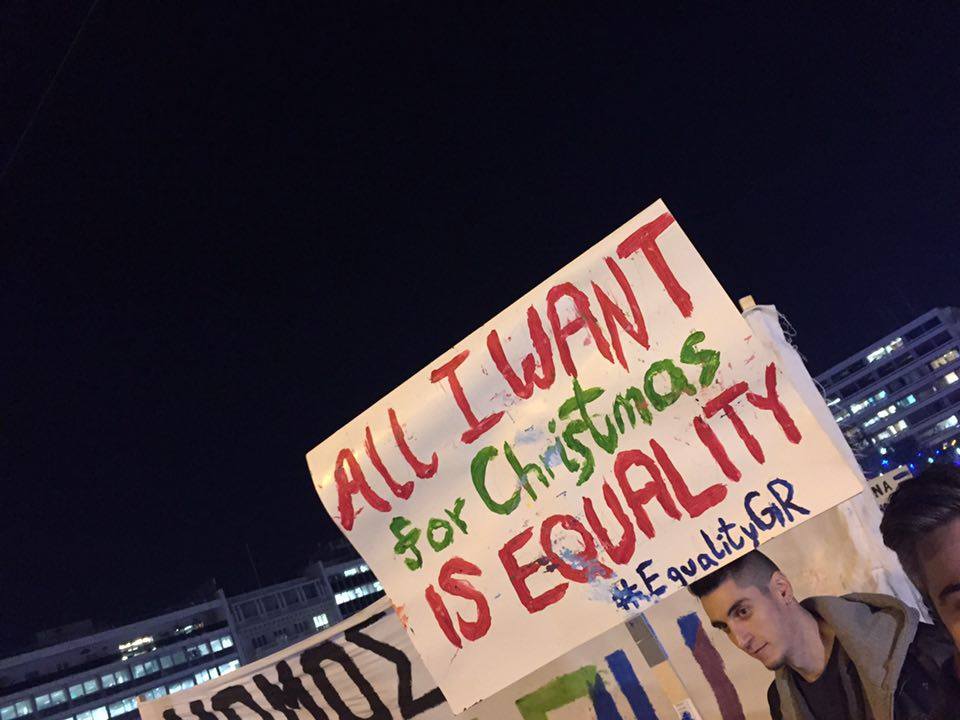 ALL I WANT
for Christmas
IS EQUALITY
#EqualityGR
ΝΟΜΟΣ
NA